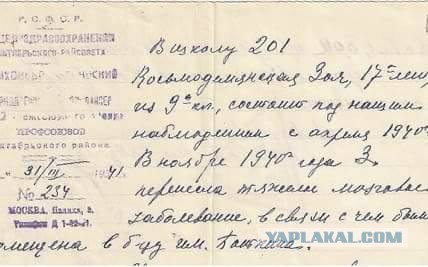 Р. С. Ф. С. Р.
ЗДРАВООХРАНЕНИЯ
РАЙСОВЕТА
ПРОФСОЮЗОВ
района
31/III 1941
№ 234
МОСКВА, Палиха, 2.
Телефон Д 1-
В школу 201
Космодемьянская Зоя, 17 лет,
из 9ª кл., состоит под нашим
наблюдением с апреля 1940г
В ноябре 1940 года З.
перенесла тяжелое мозговое
заболевание, в связи с чем была
помещена в б-цу им. Боткина.
YAPLAKAL.COM